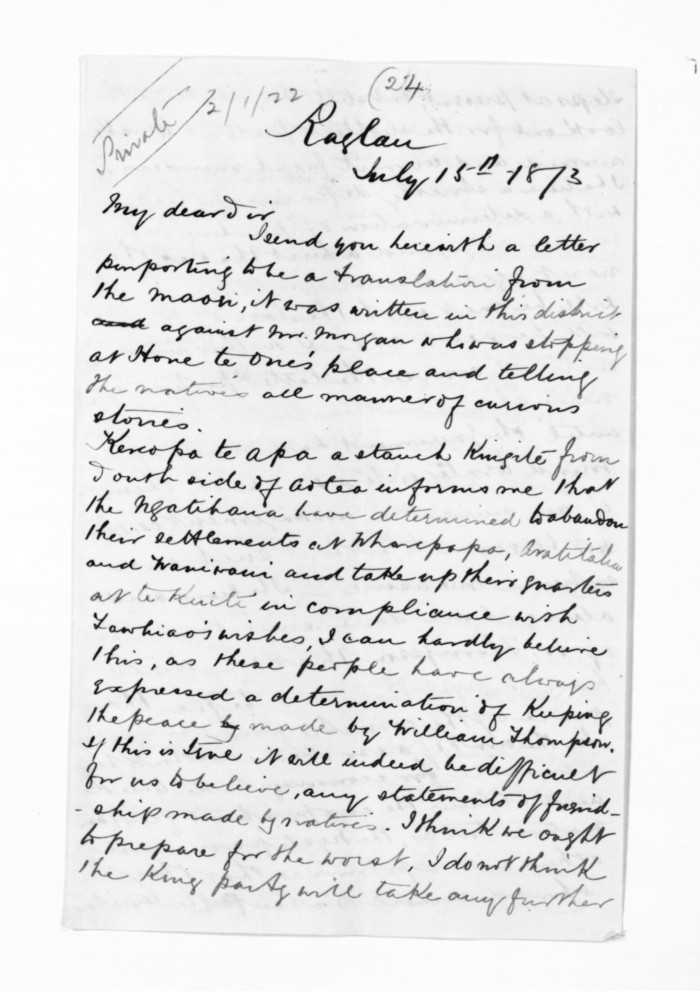 Private
2/1/22
(24
Raglan
July 15th 1873
My dear Sir
I send you herewith a letter
purporting to be a translation from
the maori, it was written in this district
and against Mr. Morgan who was stopping
at Hone te One's place and telling
the natives all manner of curious
stories.
Kereopa te Apa a stauch Kingite from
South side of Aotea informs me that
the Ngatihaua have determined to abandon
their settlements at Wharepapa, Aratitaha
and Waniwani and take up their quarters
at te Kuiti in compliance with
Tawhiao's wishes, I can hardly believe
this, as these people have always
expressed a determination of Keeping
the peace by made by William Thompson.
If this is true it will indeed be difficult
for us to believe, any statements of friend-
-ship made by natives. I think we ought
to prepare for the worst, I do not think
the King party will take any further